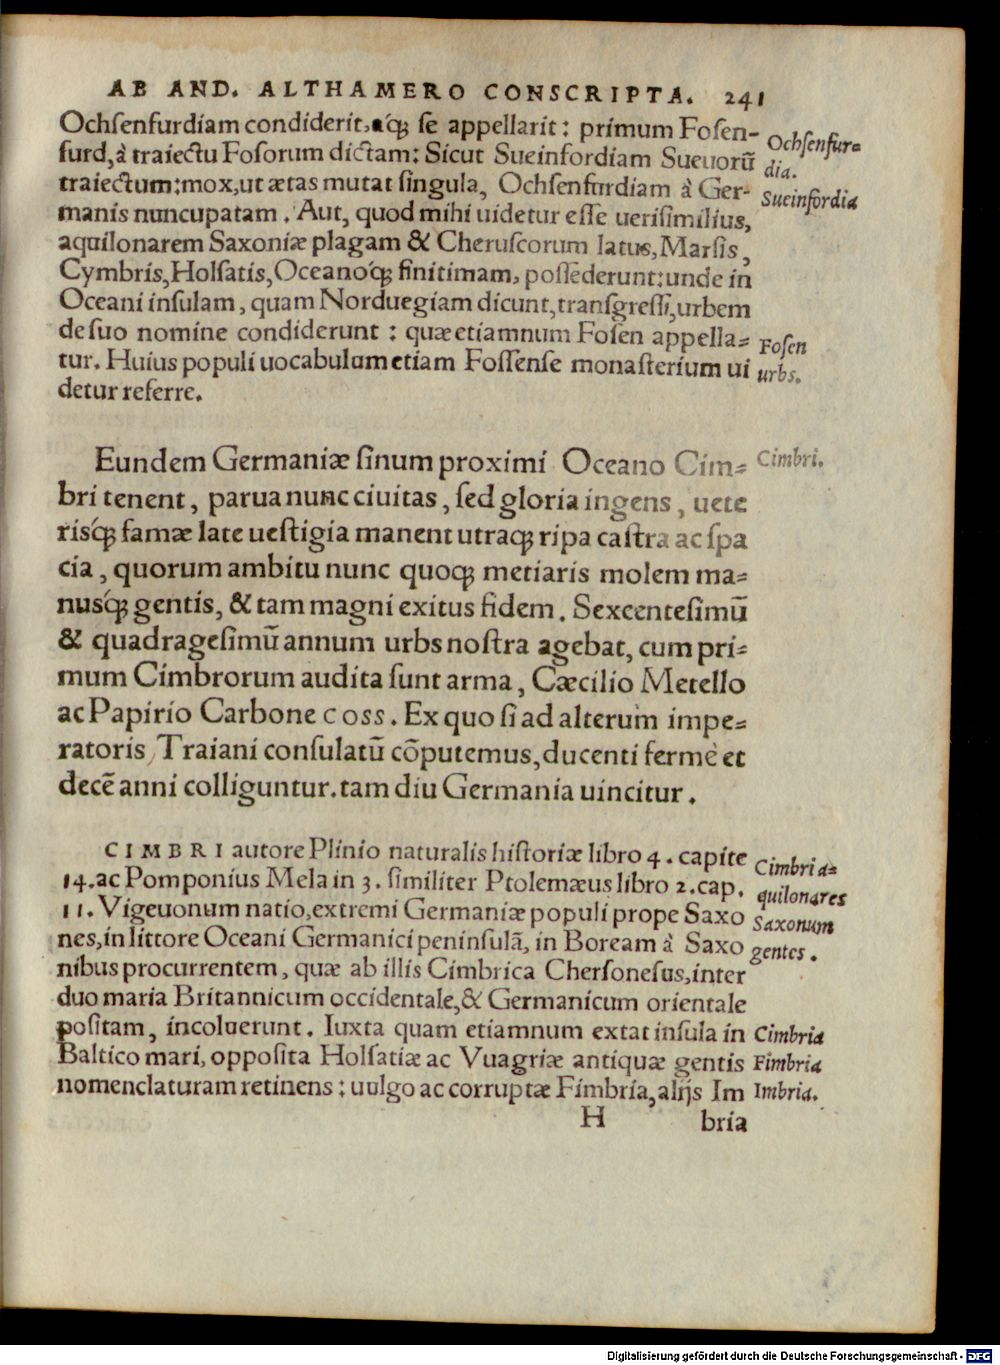 AB AND. ALTHAMERO CONSCRIPTA. 241
Ochſenfurdiam condiderit, aq́ꝫ ſe appellarit: primum Foſen-
furd, à traiectu Foſorum dictam: Sicut Sueinfordiam Sueuorū
traiectum: mox, ut ætas mutat ſingula, Ochſenfurdiam à Ger-
manis nuncupatam. Aut, quod mihi uidetur eſſe ueriſimilius,
aquilonarem Saxoniæ plagam & Cheruſcorum latus, Marſis,
Cymbris, Holſatis, Oceanoq́ꝫ finitimam, poſſederunt: unde in
Oceani inſulam, quam Norduegiam dicunt, tranſgreſſi, urbem
de ſuo nomine condiderunt: quæ etiamnum Foſen appella-
tur. Huius populi uocabulum etiam Foſſenſe monaſterium ui
detur referre.
Ochſenfur-
dia.
Sueinfordia
Foſen
urbs.
Eundem Germaniæ ſinum proximi Oceano Cim-
bri tenent, parua nunc ciuitas, ſed gloria ingens, uete
risq́ꝫ famæ late ueſtigia manent utraqꝫ ripa caſtra ac ſpa
cia, quorum ambitu nunc quoqꝫ metiaris molem ma-
nusq́ꝫ gentis, & tam magni exitus fidem. Sexcenteſimū
& quadrageſimū annum urbs noſtra agebat, cum pri-
mum Cimbrorum audita ſunt arma, Cæcilio Metello
ac Papirio Carbone coss. Ex quo ſi ad alterum impe-
ratoris Traiani conſulatū cōputemus, ducenti ferme et
decē anni colliguntur. tam diu Germania uincitur.
Cimbri.
CIMBRI autore Plinio naturalis hiſtoriæ libro 4. capite
14. ac Pomponius Mela in 3. ſimiliter Ptolemæus libro 2. cap.
11. Vigeuonum natio, extremi Germaniæ populi prope Saxo
nes, in littore Oceani Germanici peninſulā, in Boream à Saxo
nibus procurrentem, quæ ab illis Cimbrica Cherſoneſus, inter
duo maria Britannicum occidentale, & Germanicum orientale
poſitam, incoluerunt. Iuxta quam etiamnum extat inſula in
Baltico mari, oppoſita Holſatiæ ac Vuagriæ antiquæ gentis
nomenclaturam retinens: uulgo ac corruptæ Fimbria, alijs Im
H bria
Cimbri a-
quilonares
Saxonum
gentes.
Cimbria
Fimbria
Imbria.
Digitalisierung gefördert durch die Deutsche Forschungsgemeinschaft - DFG